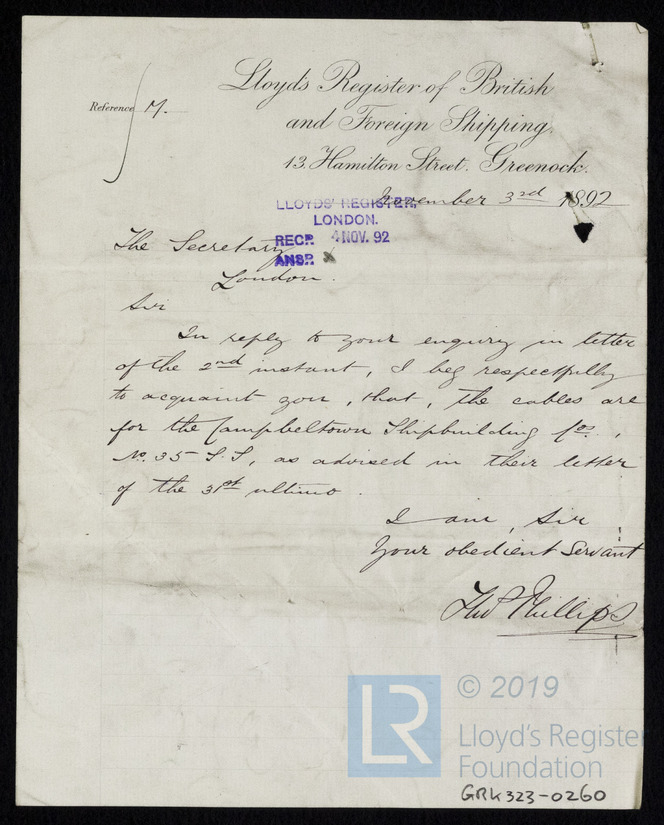 Lloyd's Register of British
and Foreign Shipping.
Reference M.
13, Hamilton Street, Greenock.
November 3rd 1892
LLOYDS' REGISTER,
LONDON.
RECD. 4 NOV. 92
ANSD.
The Secretary
London.
Sir
In reply to your enquiry in letter
of the 2nd instant, I beg respectfully
to acquaint you, that, the cables are
for the Campbeltown Shipbuilding Cos,
No. 35 S.S, as advised in their letter
of the 31st ultimo.
I am, Sir
Your obedient Servant
Thos Phillips
LR
© 2019
Lloyd's Register
Foundation
GRK323-0260